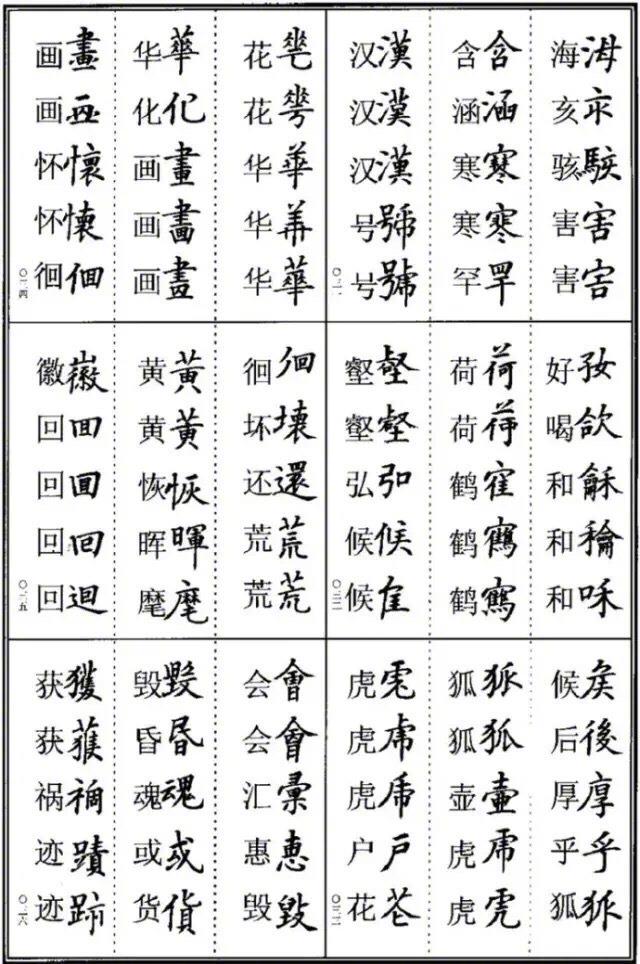 海海 亥亥 骇駭 害害 害害
含含 涵涵 寒寒 寒寒 罕罕
汉漢 汉漢 汉漢 号號 号號
〇三一
好好 喝欱 和龢 和 和咊
荷荷 荷荷 鹤隺 鹤鶴 鹤鶴
壑壑 壑壑 弘弘 候候 候
〇三二
候矦 后後 厚厚 乎乎 狐狐
狐狐 狐狐 壶壷 虎虎 虎虎
虎虎 虎虎 虎虎 户戶 花苍
〇三三
花花 花花 华華 华華 华華
华華 化化 画畫 画畫 画畫
画畫 画画 怀懷 怀懐 徊佪
〇三四
徊徊 坏壞 还還 荒荒 荒荒
黄黃 黄黄 恢恢 晖暉 麾麾
徽徽 回囬 回囬 回回 回迴
〇三五
会會 会會 汇彙 惠惠 毁毀
毁毀 昏昬 魂魂 或或 货貨
获獲 获獲 祸禍 迹蹟 迹跡
〇三六